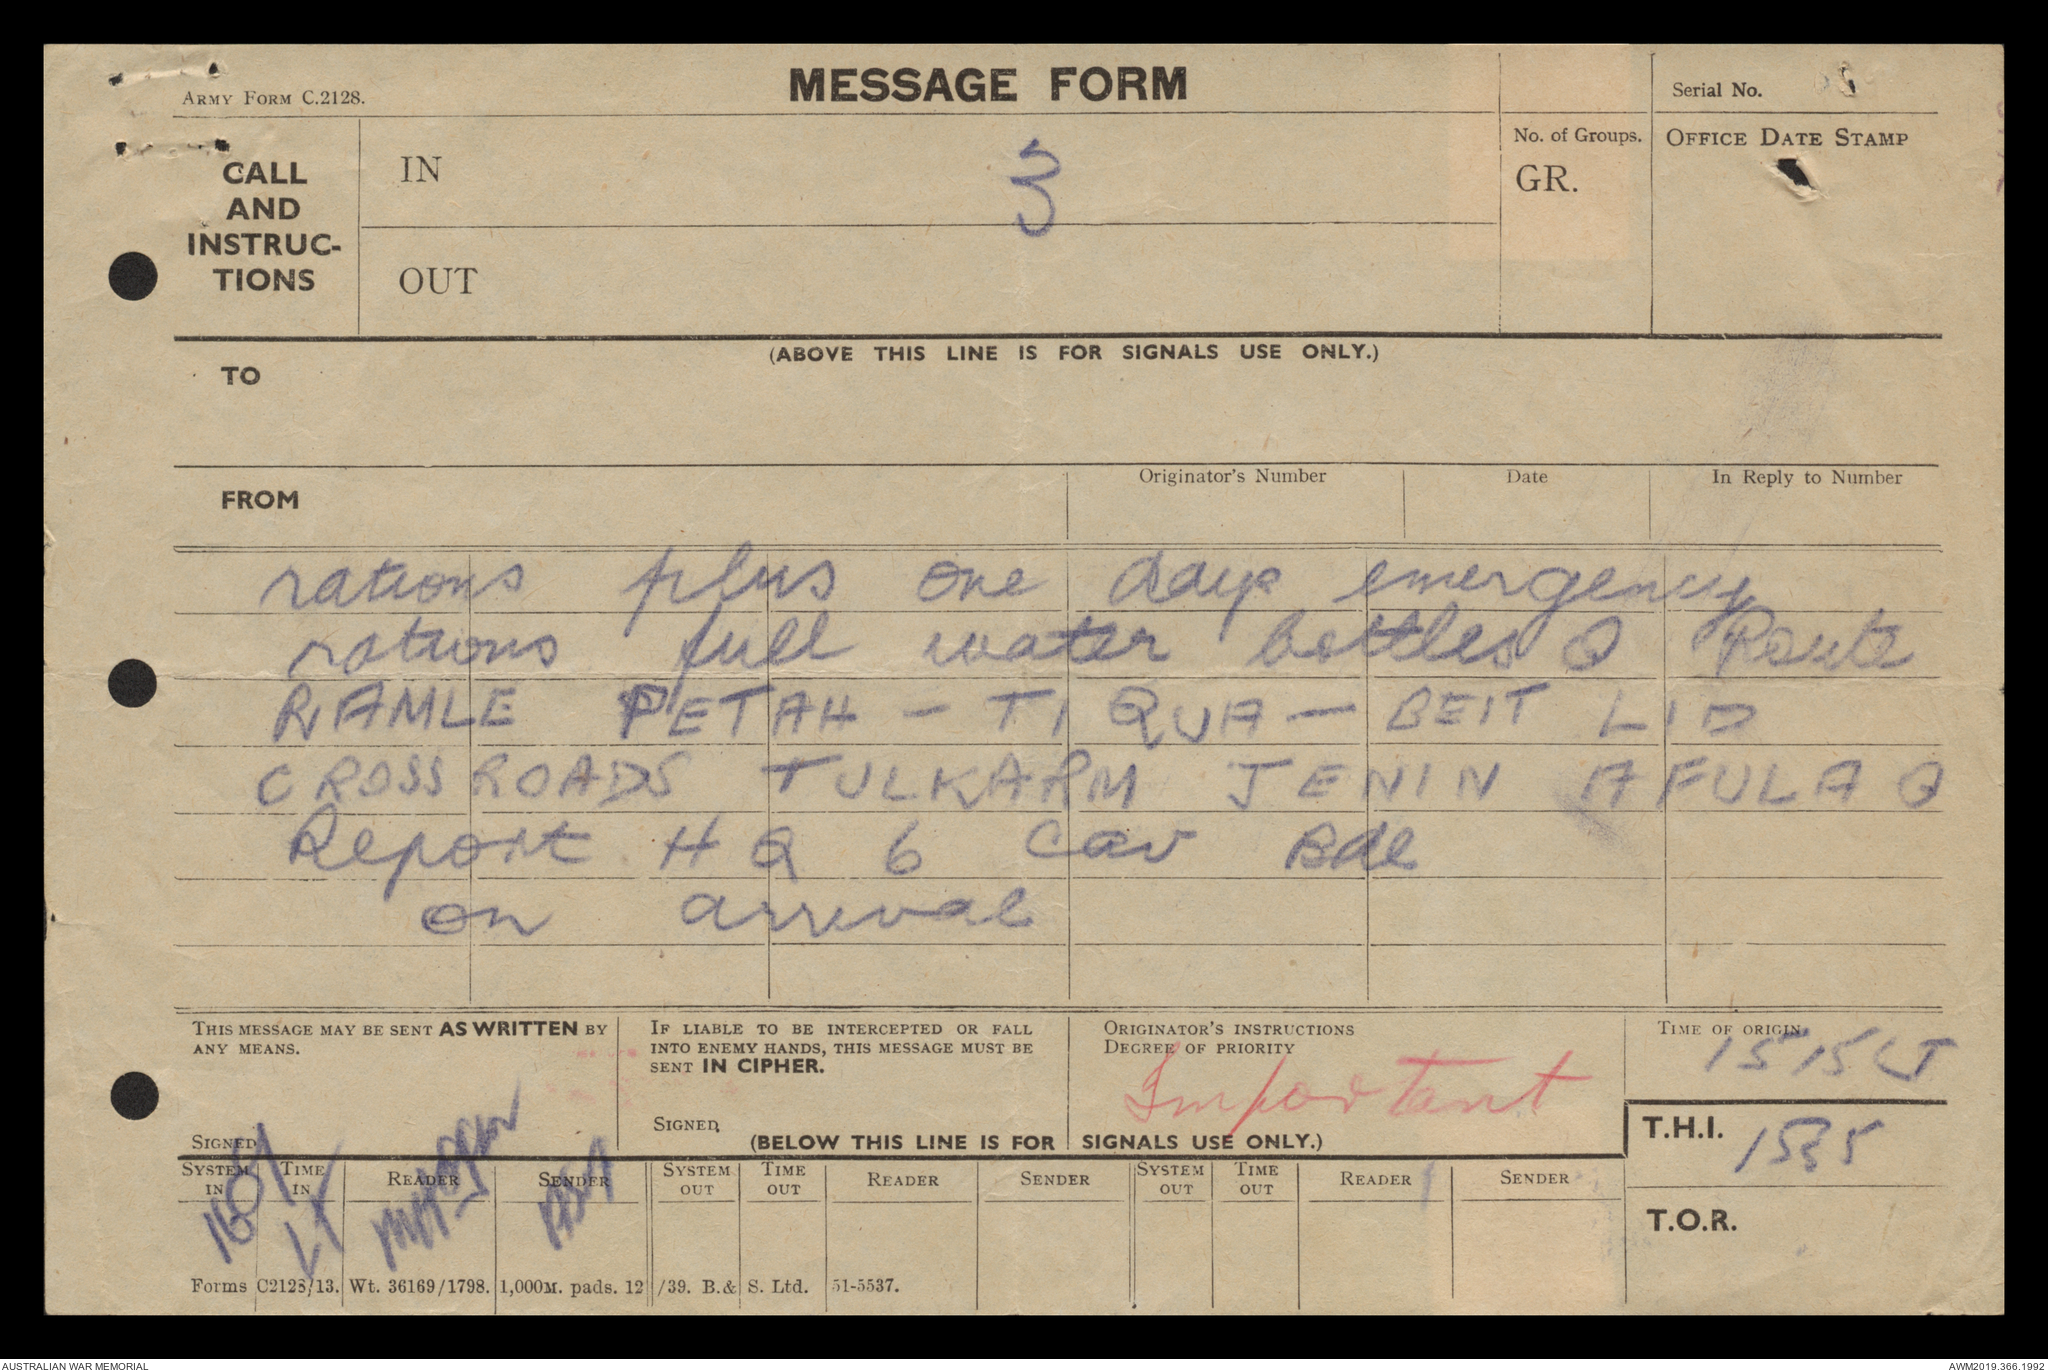 MESSAGE FORM
ARMY FORM C.2128.
Serial No.
CALL
AND
INSTRUC-
TIONS
IN
3
OUT
No. of Groups.
GR.
OFFICE DATE STAMP
(ABOVE THIS LINE IS FOR SIGNALS USE ONLY.)
TO
FROM
Originator's Number
Date
In Reply to Number
rations plus one days emergency
rations full water bottles Q Route
RAMLE PETAH - TIQUA - BEIT LID
CROSS ROADS TULKARM JENIN AFULA Q
Report HQ 6 Cav Bde
on arrival
THIS MESSAGE MAY BE SENT AS WRITTEN BY
ANY MEANS.
SIGNED
IF LIABLE TO BE INTERCEPTED OR FALL
INTO ENEMY HANDS, THIS MESSAGE MUST BE
SENT IN CIPHER.
SIGNED
ORIGINATOR'S INSTRUCTIONS
DEGREE OF PRIORITY
Important
TIME OF ORIGIN
1515 LT
T.H.I.
1535
T.O.R.
(BELOW THIS LINE IS FOR SIGNALS USE ONLY.)
SYSTEM IN
TIME IN
READER
SENDER
SYSTEM OUT
TIME OUT
READER
SENDER
SYSTEM OUT
TIME OUT
READER
SENDER
Forms C2128/13. Wt. 36169/1798. 1,000M. pads. 12/39. B.& S. Ltd. 51-5537.
AUSTRALIAN WAR MEMORIAL
AWM2019.366.1992